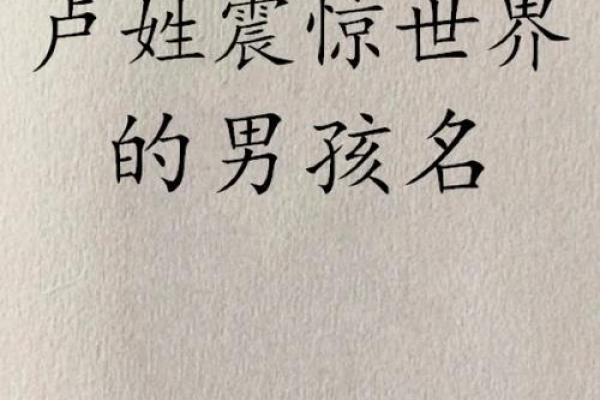 卢姓震惊世界
的男孩名